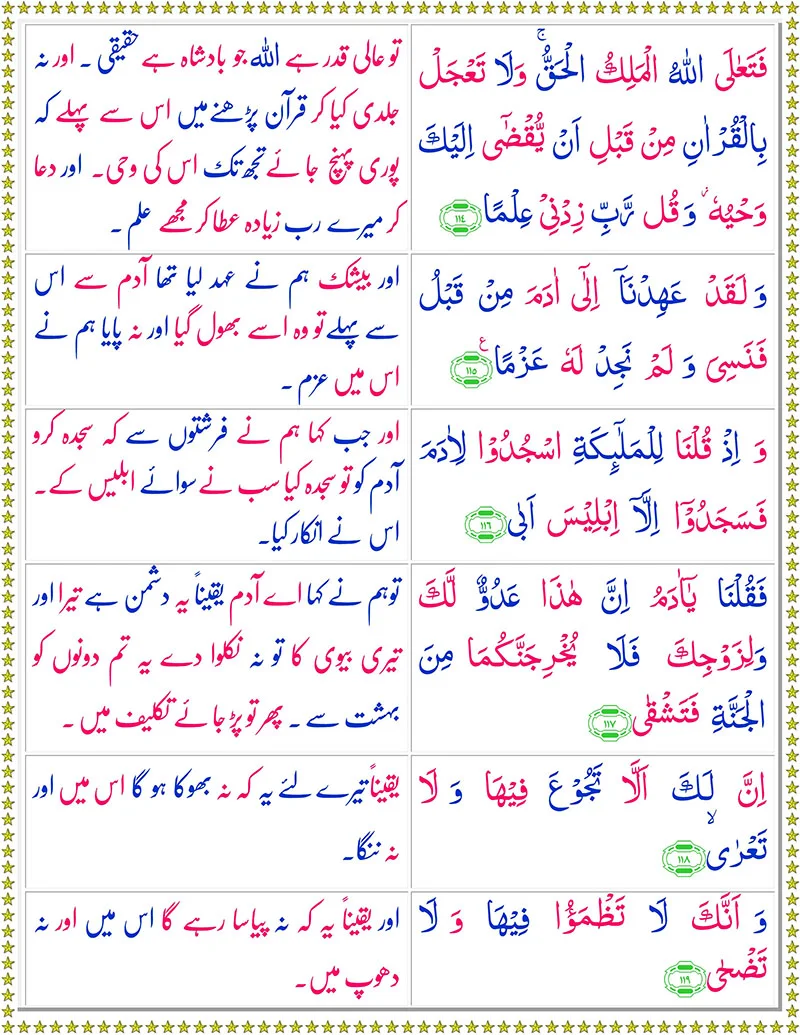 فَتَعٰلَى اللّٰهُ الْمَلِكُ الْحَقُّ ۚ وَلَا تَعْجَلْ
بِالْقُرْاٰنِ مِنْ قَبْلِ اَنْ يُّقْضٰۤى اِلَيْكَ
وَحْيُهٗ ؗ وَقُل رَّبِّ زِدْنِيْ عِلْمًا ﴿۱۱۴﴾
تو عالی قدر ہے اللہ جو بادشاہ ہے حقیقی ۔ اور نہ
جلدی کیا کر قرآن پڑھنے میں اس سے پہلے کہ
پوری پہنچ جائے تجھ تک اس کی وحی۔ اور دعا
کر میرے رب زیادہ عطا کر مجھے علم ۔
وَ لَقَدْ عَهِدْنَاۤ اِلٰۤى اٰدَمَ مِنْ قَبْلُ
فَنَسِيَ وَ لَمْ نَجِدْ لَهٗ عَزْمًا ﴿۱۱۵﴾ ع
اور بیشک ہم نے عہد لیا تھا آدم سے اس
سے پہلے تو وہ اسے بھول گیا اور نہ پایا ہم نے
اس میں عزم ۔
وَ اِذْ قُلْنَا لِلْمَلٰٓئِكَةِ اسْجُدُوْا لِاٰدَمَ
فَسَجَدُوْۤا اِلَّاۤ اِبْلِيْسَ اَبٰى ﴿۱۱۶﴾
اور جب کہا ہم نے فرشتوں سے کہ سجدہ کرو
آدم کو تو سجدہ کیا سب نے سوائے ابلیس کے ۔
اس نے انکار کیا۔
فَقُلْنَا يٰۤاٰدَمُ اِنَّ هٰذَا عَدُوٌّ لَّكَ
وَلِزَوْجِكَ فَلَا يُخْرِجَنَّكُمَا مِنَ
الْجَنَّةِ فَتَشْقٰى ﴿۱۱۷﴾
تو ہم نے کہا اے آدم یقیناً یہ دشمن ہے تیرا اور
تیری بیوی کا تو نہ نکلوا دے یہ تم دونوں کو
بہشت سے ۔ پھر تو پڑ جائے تکلیف میں ۔
اِنَّ لَكَ اَلَّا تَجُوْعَ فِيْهَا وَ لَا
تَعْرٰى ۙ ﴿۱۱۸﴾
یقیناً تیرے لئے یہ کہ نہ بھوکا ہو گا اس میں اور
نہ ننگا۔
وَ اَنَّكَ لَا تَظْمَؤُا فِيْهَا وَ لَا
تَضْحٰى ﴿۱۱۹﴾
اور یقیناً یہ کہ نہ پیاسا رہے گا اس میں اور نہ
دھوپ میں۔